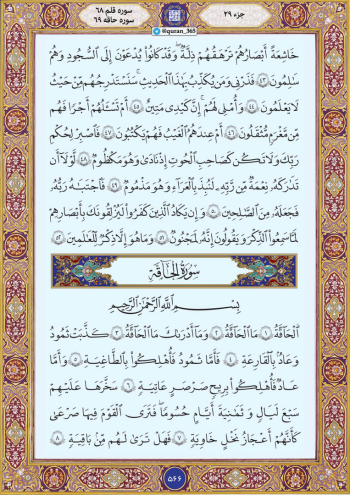 جزء ۲۹
@quran_365
سوره قلم ۶۸
سوره حاقه ۶۹
خَاشِعَةً أَبْصَارُهُمْ تَرْهَقُهُمْ ذِلَّةٌ وَقَدْ كَانُوا۟ يُدْعَوْنَ إِلَى ٱلسُّجُودِ وَهُمْ
سَالِمُونَ ﴿٤٣﴾ فَذَرْنِى وَمَن يُكَذِّبُ بِهَـٰذَا ٱلْحَدِيثِ سَنَسْتَدْرِجُهُم مِّنْ حَيْثُ
لَا يَعْلَمُونَ ﴿٤٤﴾ وَأُمْلِى لَهُمْ إِنَّ كَيْدِى مَتِينٌ ﴿٤٥﴾ أَمْ تَسْـَٔلُهُمْ أَجْرًا فَهُم
مِّن مَّغْرَمٍ مُّثْقَلُونَ ﴿٤٦﴾ أَمْ عِندَهُمُ ٱلْغَيْبُ فَهُمْ يَكْتُبُونَ ﴿٤٧﴾ فَٱصْبِرْ لِحُكْمِ
رَبِّكَ وَلَا تَكُن كَصَاحِبِ ٱلْحُوتِ إِذْ نَادَىٰ وَهُوَ مَكْظُومٌ ﴿٤٨﴾ لَّوْلَآ أَن
تَدَٰرَكَهُۥ نِعْمَةٌ مِّن رَّبِّهِۦ لَنُبِذَ بِٱلْعَرَآءِ وَهُوَ مَذْمُومٌ ﴿٤٩﴾ فَٱجْتَبَـٰهُ رَبُّهُۥ
فَجَعَلَهُۥ مِنَ ٱلصَّـٰلِحِينَ ﴿٥٠﴾ وَإِن يَكَادُ ٱلَّذِينَ كَفَرُوا۟ لَيُزْلِقُونَكَ بِأَبْصَـٰرِهِمْ
لَمَّا سَمِعُوا۟ ٱلذِّكْرَ وَيَقُولُونَ إِنَّهُۥ لَمَجْنُونٌ ﴿٥١﴾ وَمَا هُوَ إِلَّا ذِكْرٌ لِّلْعَـٰلَمِينَ ﴿٥٢﴾
سُورَةُ الْحَاقَّةِ
بِسْمِ ٱللَّهِ ٱلرَّحْمَـٰنِ ٱلرَّحِيمِ
ٱلْحَآقَّةُ ﴿١﴾ مَا ٱلْحَآقَّةُ ﴿٢﴾ وَمَآ أَدْرَىٰكَ مَا ٱلْحَآقَّةُ ﴿٣﴾ كَذَّبَتْ ثَمُودُ
وَعَادٌۢ بِٱلْقَارِعَةِ ﴿٤﴾ فَأَمَّا ثَمُودُ فَأُهْلِكُوا۟ بِٱلطَّاغِيَةِ ﴿٥﴾ وَأَمَّا
عَادٌ فَأُهْلِكُوا۟ بِرِيحٍ صَرْصَرٍ عَاتِيَةٍ ﴿٦﴾ سَخَّرَهَا عَلَيْهِمْ
سَبْعَ لَيَالٍ وَثَمَـٰنِيَةَ أَيَّامٍ حُسُومًا فَتَرَى ٱلْقَوْمَ فِيهَا صَرْعَىٰ
كَأَنَّهُمْ أَعْجَازُ نَخْلٍ خَاوِيَةٍ ﴿٧﴾ فَهَلْ تَرَىٰ لَهُم مِّنۢ بَاقِيَةٍ ﴿٨﴾
۵۶۶